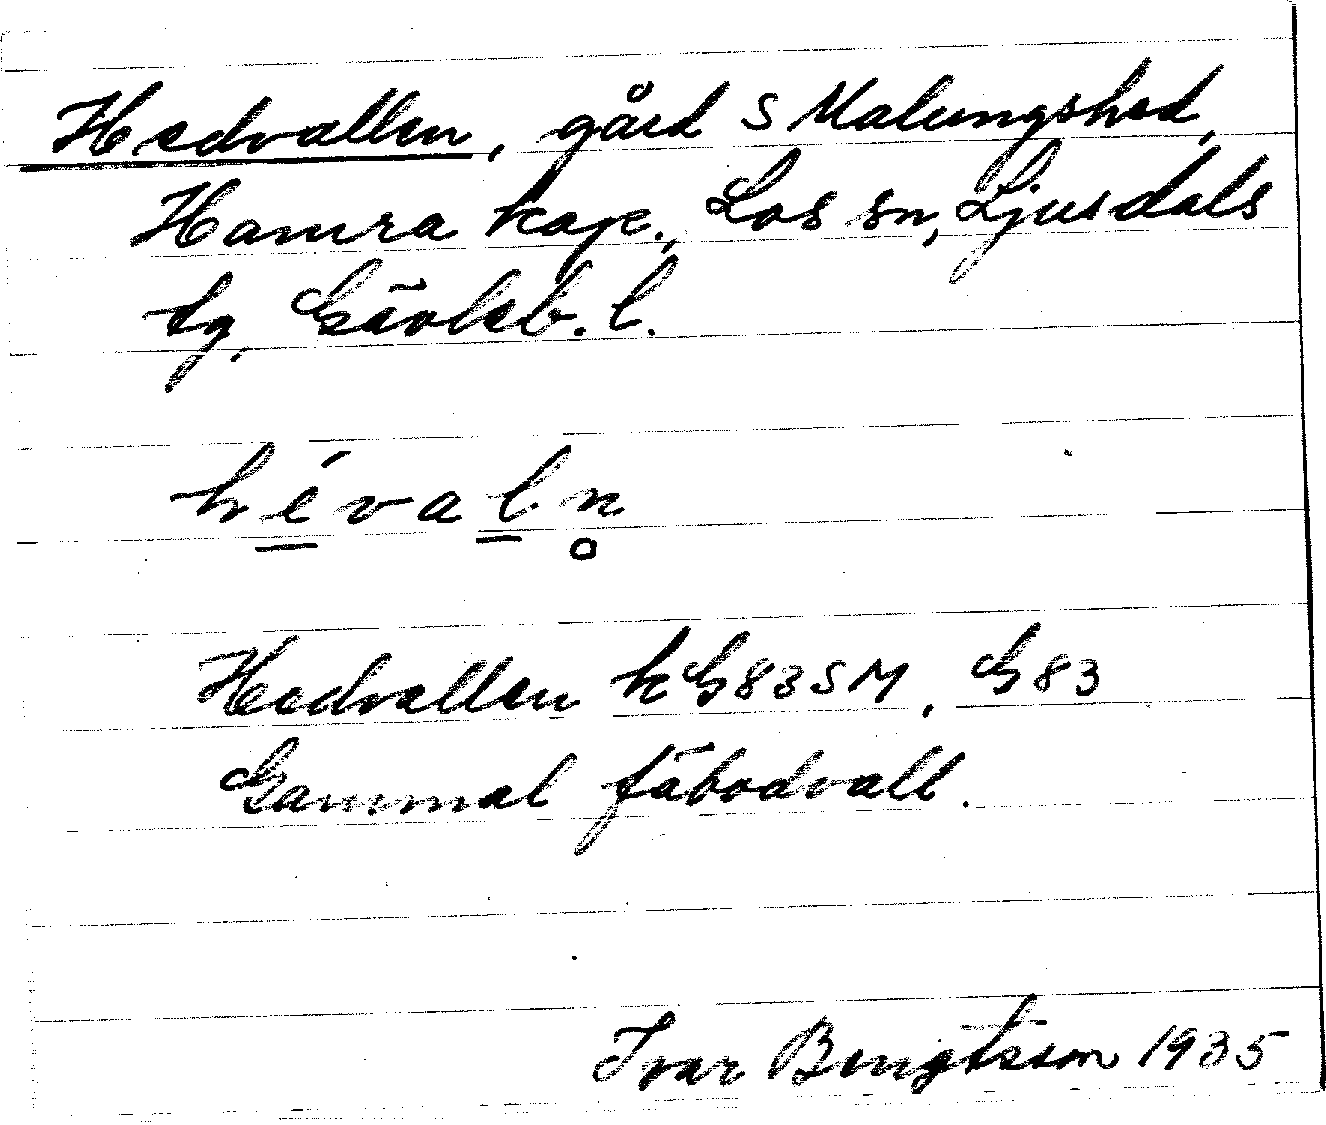 Hedvallen, gård S Malungshed,
Hamra kap., Los sn, Ljusdals
tg, Gävleb. l.
hévaln̥
Hedvallen k G83SM, G83
Gammal fäbodvall.
Ivar Bengtsson 1935